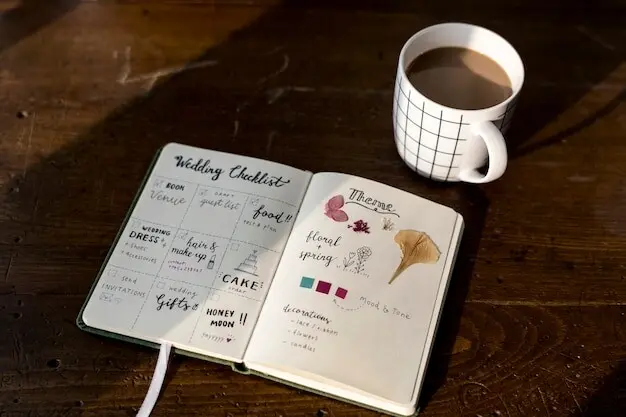 Wedding Checklist
BOOK
Venue
DRAFT
guest list
food!!
test & plan
WEDDING
DRESS +
+ SHOES
+ ACCESSORIES
hair &
make up
CAKE
send
INVITATIONS
wedding
Gifts
HONEY
MOON !!
yayyyy
Theme
floral
+
spring
Mood & Tone
decorations
- lace / ribbon
- flowers
- candles